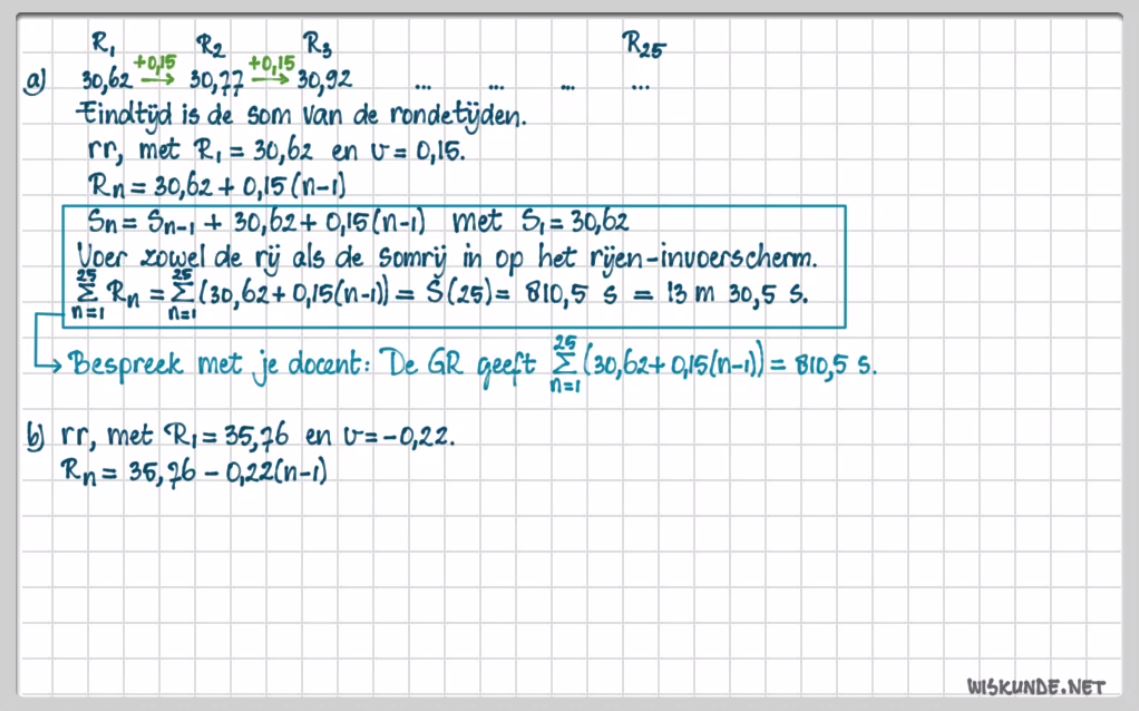 R₁ R₂ R₃ R₂₅
+0,15 +0,15
a) 30,62 → 30,77 → 30,92 ... ... ... ...
Eindtijd is de som van de rondetijden.
rr, met R₁ = 30,62 en v = 0,15.
Rn = 30,62 + 0,15(n-1)
Sn = Sn-1 + 30,62 + 0,15(n-1) met S₁ = 30,62
Voer zowel de rij als de somrij in op het rijen-invoerscherm.
25∑n=1 Rn = 25∑n=1 (30,62 + 0,15(n-1)) = Š(25) = 810,5 s = 13 m 30,5 s.
→ Bespreek met je docent: De GR geeft 25∑n=1 (30,62 + 0,15(n-1)) = 810,5 s.
b) rr, met R₁ = 35,76 en v = -0,22.
Rn = 35,76 - 0,22(n-1)
WISKUNDE.NET